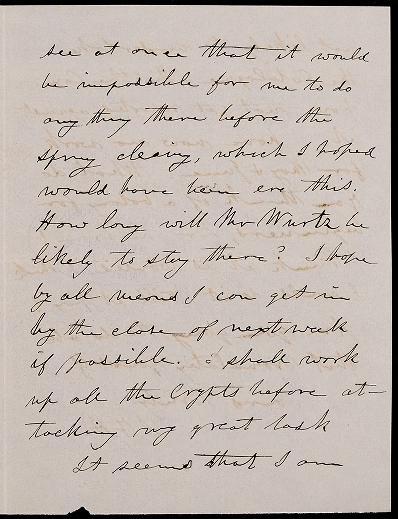 see at once that it would
be impossible for me to do
any thing there before the
spring clearing, which I hoped
would have been ere this.
How long will Mr Wurtz be
likely to stay there? I hope
by all means I can get in
by the close of next week
if possible. I shall work
up all the Crypts before at-
tacking my great task
It seems that I am